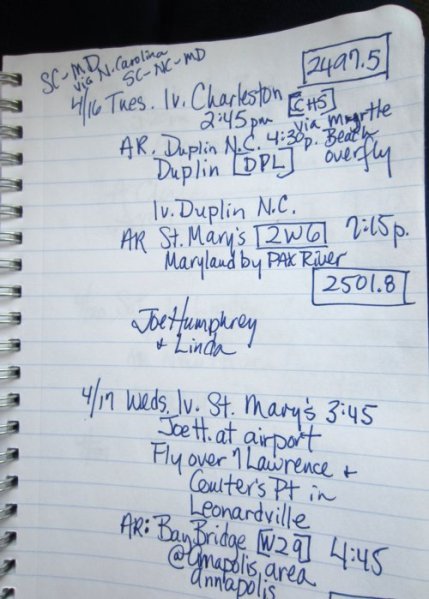 SC-MD
via N. Carolina
SC-NC-MD
2497.5
4/16 Tues. lv. Charleston CHS
2:45pm via Myrtle
AR. Duplin N.C. 4:30p. Beach
Duplin DPL overfly
lv. Duplin N.C.
AR St. Mary's 2W6 7:15p.
Maryland by PAX River
2501.8
Joe Humphrey
& Linda
4/17 Weds. lv. St. Mary's 3:45
Joe H. at airport
Fly over Lawrence &
Coulter's Pt in
Leonardville
AR: Bay Bridge W29 4:45
@ area
annapolis